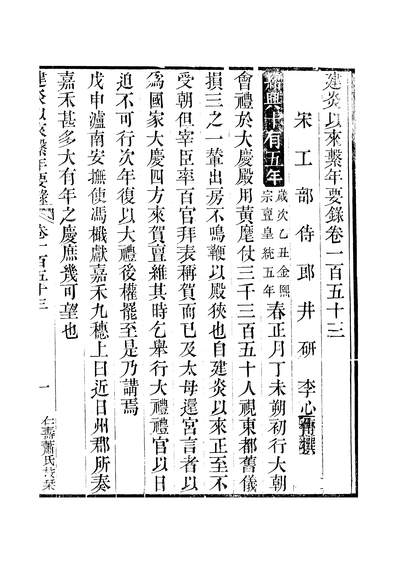 建炎以來繫年要錄卷一百五十三
宋工部侍郎井研李心傳撰
紹興十有五年歲次乙丑金熙宗亶皇統五年春正月丁未朔初行大朝
會禮於大慶殿用黃麾仗三千三百五十人視東都舊儀
損三之一輦出房不鳴鞭以殿狹也自建炎以來正至不
受朝但宰臣率百官拜表稱賀而已及太母還宮言者以
為國家大慶四方來賀亶維其時乞舉行大禮禮官以日
迫不可行次年復以大禮後權罷至是乃講焉
戊申瀘南安撫使馮檝獻嘉禾九穗上曰近日州郡所奏
嘉禾甚多大有年之慶庶幾可望也
建炎以來繫年要錄 卷一百五十三 一 仁壽蕭氏栞